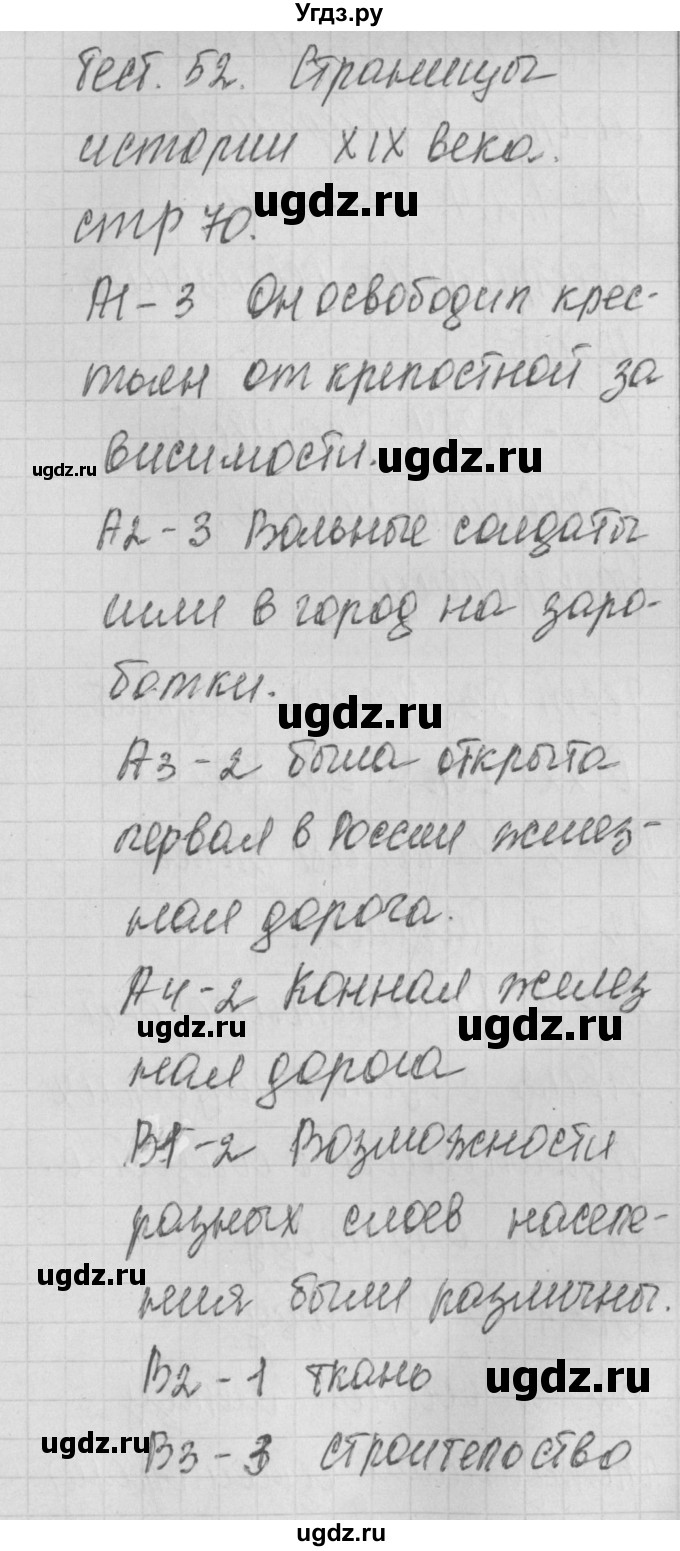 Угдз.ру
Тест. 52. Страницы
истории XIX века.
ugdz.ru
стр 70.
А1 - 3 Он освободил крес-
тьян от крепостной за
ugdz.ru
висимости.
ugdz.ru
А2 - 3 Вольные солдаты
шли в город на зара-
ботки.
ugdz.ru
А3 - 2 была открыта
первая в России желез-
ная дорога.
ugdz.ru
А4 - 2 Конная желез
ugdz.ru
ugdz.ru
ная дорога
В1 - 2 Возможности
разных слоев населе-
ugdz.ru
ния были различны.
В2 - 1 ткань
ugdz.ru
ugdz.ru
В3 - 3 строительство
ugdz.ru